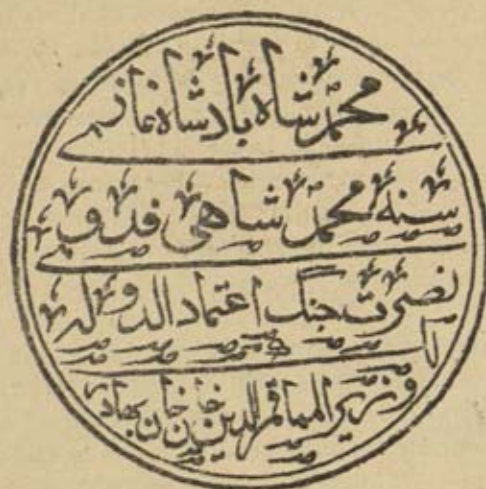 محمد شاه بادشاه غازی
سنه محمد شاهی فدوی
نصرت جنگ اعتماد الدوله
وزیر الممالک قمرالدین خان بهادر